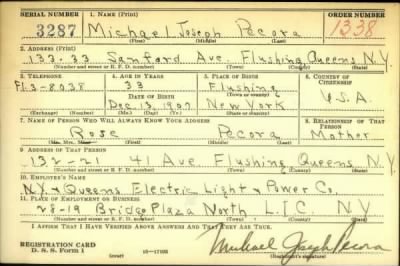 SERIAL NUMBER 1. NAME (Print) ORDER NUMBER
3287 Michael Joseph Pecora 1338
(First) (Middle) (Last)
2. ADDRESS (Print)
133-33 Sanford Ave. Flushing Queens N.Y.
(Number and street or R. F. D. number) (Town) (County) (State)
3. TELEPHONE 4. AGE IN YEARS 5. PLACE OF BIRTH 6. COUNTRY OF CITIZENSHIP
Fl.3-8038 33 Flushing
DATE OF BIRTH (Town or county)
Dec. 13, 1907 New York U.S.A.
(Exchange) (Number) (Mo.) (Day) (Yr.) (State or country)
7. NAME OF PERSON WHO WILL ALWAYS KNOW YOUR ADDRESS 8. RELATIONSHIP OF THAT PERSON
Rose Pecora Mother
(Mr., Mrs., Miss) (First) (Middle) (Last)
9. ADDRESS OF THAT PERSON
132-21 41 Ave. Flushing Queens N.Y.
(Number and street or R. F. D. number) (Town) (County) (State)
10. EMPLOYER'S NAME
N.Y. & Queens Electric Light & Power Co.
11. PLACE OF EMPLOYMENT OR BUSINESS
28-19 Bridge Plaza North L.I.C. NY
(Number and street or R. F. D. number) (Town) (County) (State)
I AFFIRM THAT I HAVE VERIFIED ABOVE ANSWERS AND THAT THEY ARE TRUE.
REGISTRATION CARD
D. S. S. Form 1 Michael Joseph Pecora